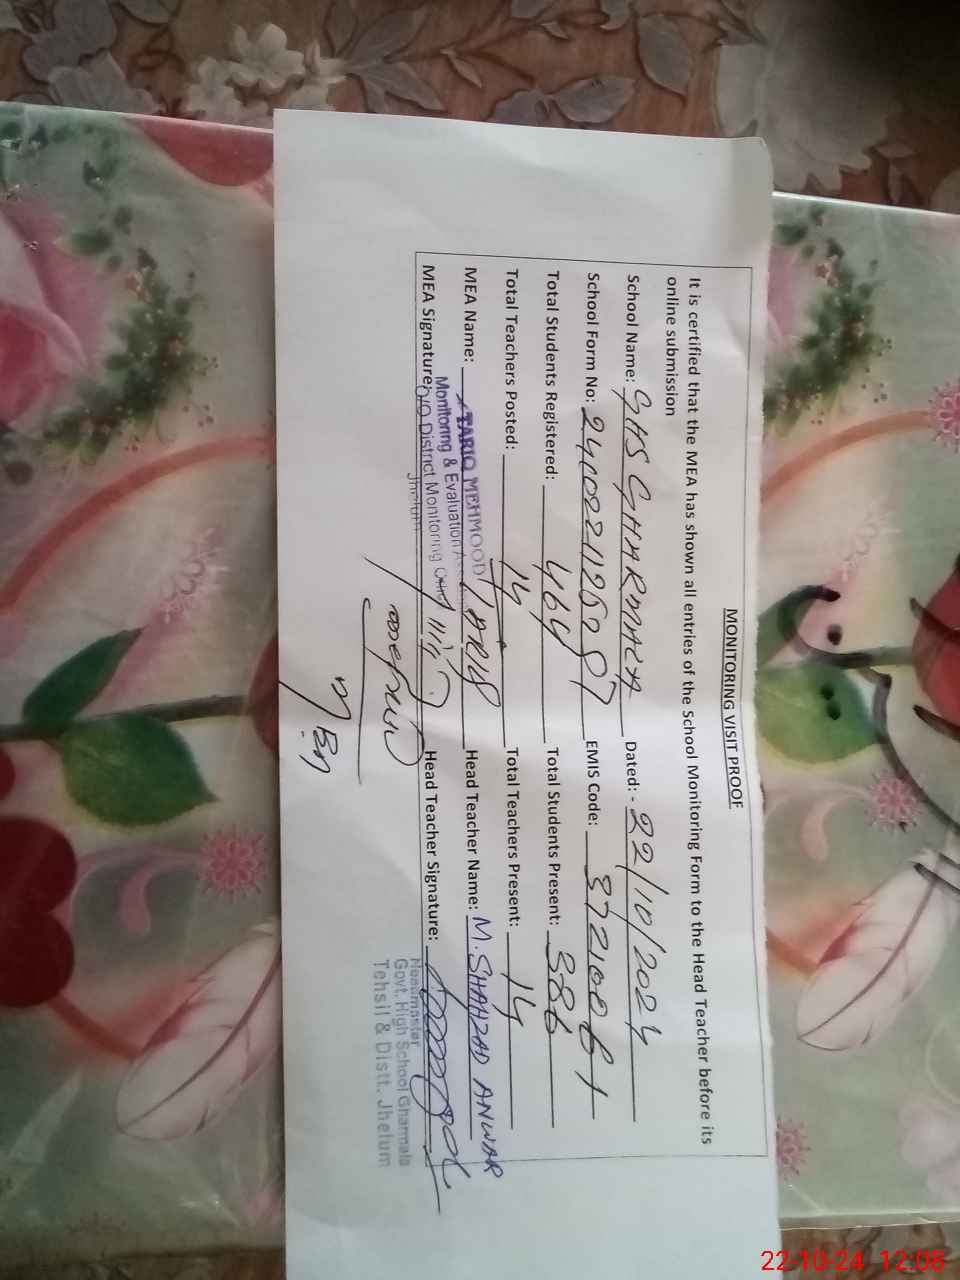 MONITORING VISIT PROOF
It is certified that the MEA has shown all entries of the School Monitoring Form to the Head Teacher before its
online submission
School Name: GHS GHARMALA Dated: - 22/10/2024
School Form No: EMIS Code: 37210061
Total Students Registered: 464 Total Students Present: 386
Total Teachers Posted: 14 Total Teachers Present: 14
MEA Name: TARIQ MEHMOOD Head Teacher Name: M. SHAHZAD ANWAR
Monitoring & Evaluation
MEA Signature: O/O District Monitoring Head Teacher Signature:
Jhelum
Headmaster
Govt. High School Gharmala
Tehsil & Distt. Jhelum
22-10-24 12:08